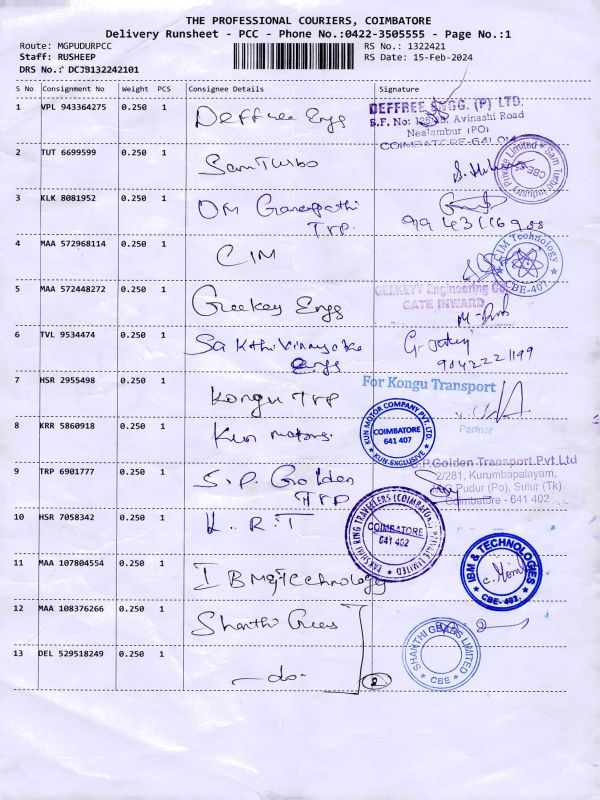 THE PROFESSIONAL COURIERS, COIMBATORE
Delivery Runsheet - PCC - Phone No.:0422-3505555 - Page No.:1
Route: MGPUDURPCC
Staff: RUSHEEP
DRS No.: DCJB132242101
RS No.: 1322421
RS Date: 15-Feb-2024
S No Consignment No Weight PCS Consignee Details Signature
1 VPL 943364275 0.250 1 Deffree Engs
DEFFREE ENGG. (P) LTD.
S.F. No: Avinashi Road
Neelambur (PO)
COIMBATORE-641 014
2 TUT 6699599 0.250 1 Sam Turbo
Sam Turbo Industry Private Limited CBE
3 KLK 8081952 0.250 1 OM Ganapathi
Trp.
4 MAA 572968114 0.250 1 CIM
CIM Technology CBE-407
5 MAA 572448272 0.250 1 Geekey Engs
GEEKEYY Engineering Co
GATE INWARD
6 TVL 9534474 0.250 1 Sakthi Vinayaka
Engs
9042221199
7 HSR 2955498 0.250 1 Kongu Trp
For Kongu Transport
Partner
8 KRR 5860918 0.250 1 Kun motors.
KUN MOTOR COMPANY PVT. LTD. COIMBATORE 641 407 KUN-EXCLUSIVE
9 TRP 6901777 0.250 1 S.P. Golden
TRP
S.P.Golden Transport Pvt.Ltd
2/281, Kurumbapalayam,
Pudur (Po), Sulur (Tk)
Coimbatore - 641 402
10 HSR 7058342 0.250 1 L.R.T
COIMBATORE 641 402
11 MAA 107804554 0.250 1 IBM & Technology
IBM & TECHNOLOGIES CBE-402.
12 MAA 108376266 0.250 1 Shanthi Gears
SHANTHI GEARS LIMITED CBE
13 DEL 529518249 0.250 1 -do-
2